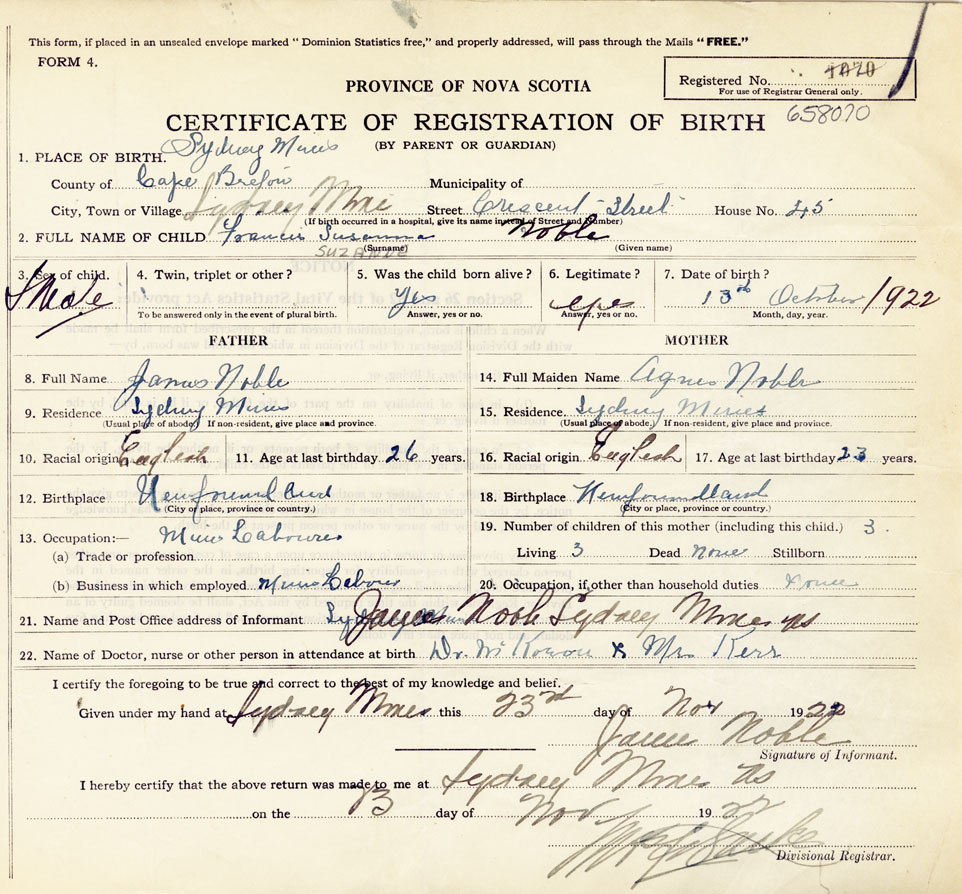 This form, if placed in an unsealed envelope marked "Dominion Statistics free," and properly addressed, will pass through the Mails "FREE."
FORM 4.
Registered No. 1070
For use of Registrar General only.
PROVINCE OF NOVA SCOTIA
658070
CERTIFICATE OF REGISTRATION OF BIRTH
(BY PARENT OR GUARDIAN)
1. PLACE OF BIRTH. Sydney Mines
County of Cape Breton Municipality of
City, Town or Village Sydney Mine Street Crescent Street House No. 45
(If birth occurred in a hospital, give its name instead of Street and Number)
2. FULL NAME OF CHILD Francis Susanna Noble
SUZANNE (Surname) (Given name)
3. Sex of child. 4. Twin, triplet or other? 5. Was the child born alive? 6. Legitimate? 7. Date of birth?
Yes yes 13th October 1922
To be answered only in the event of plural birth. Answer, yes or no. Answer, yes or no. Month, day, year.
FATHER MOTHER
8. Full Name James Noble 14. Full Maiden Name Agnes Noble
9. Residence Sydney Mines 15. Residence. Sydney Mines
(Usual place of abode) If non-resident, give place and province. (Usual place of abode.) If non-resident, give place and province.
10. Racial origin English 11. Age at last birthday 26 years. 16. Racial origin English 17. Age at last birthday 23 years.
12. Birthplace Newfoundland 18. Birthplace Newfoundland
(City or place, province or country.) (City or place, province or country.)
19. Number of children of this mother (including this child.) 3.
13. Occupation:— Mine Labourer
(a) Trade or profession Living 3 Dead none Stillborn
(b) Business in which employed Mine Labour 20. Occupation, if other than household duties
21. Name and Post Office address of Informant James Noble Sydney Mines NS
22. Name of Doctor, nurse or other person in attendance at birth Dr. McKowan & Mrs Kerr
I certify the foregoing to be true and correct to the best of my knowledge and belief.
Given under my hand at Sydney Mines this 23rd day of Nov 1922
James Noble
Signature of Informant.
I hereby certify that the above return was made to me at Sydney Mines NS
on the 23 day of Nov 1922
Divisional Registrar.